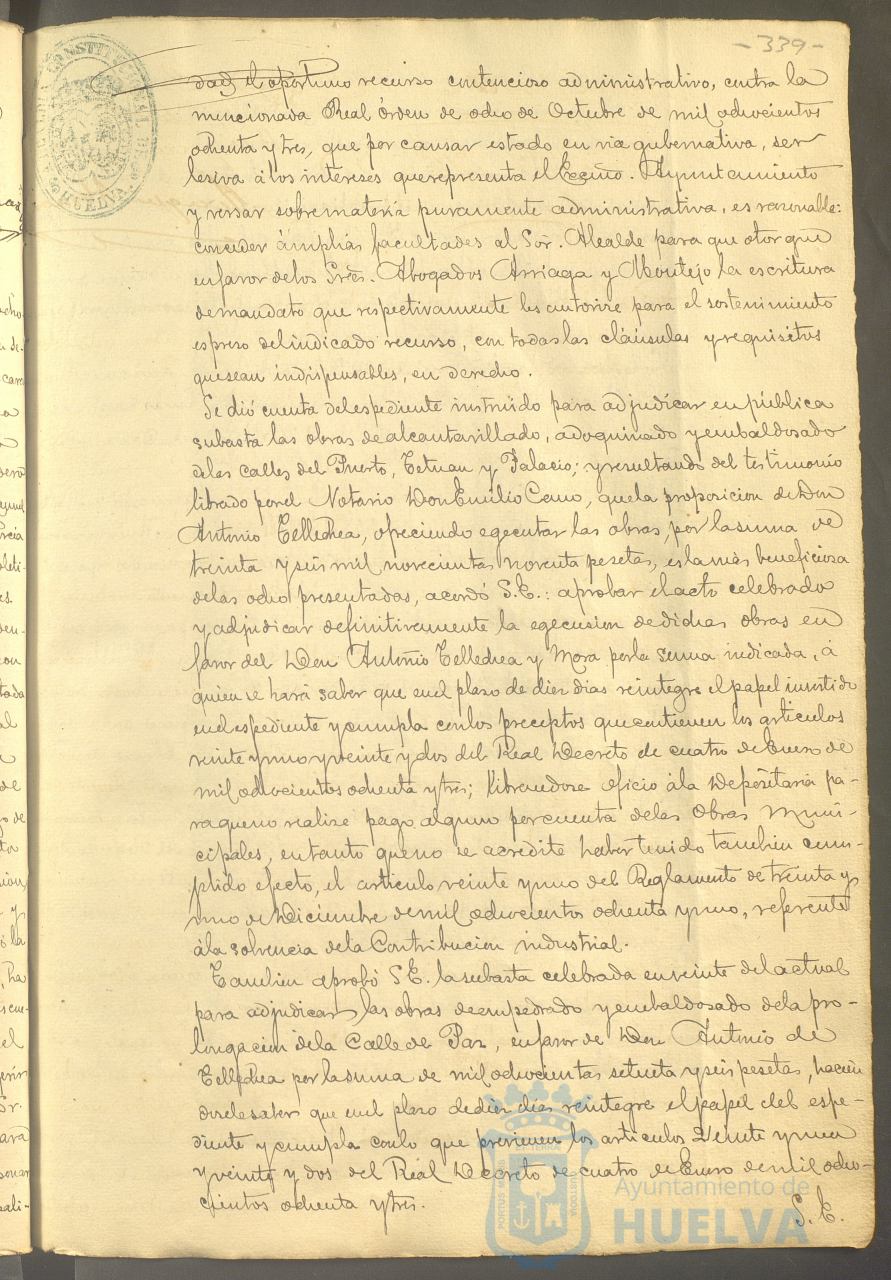 -339-
dad el oportuno recurso contencioso administrativo, contra la
mencionada Real órden de ocho de Octubre de mil ochocientos
ochenta y tres, que por causar estado en via gubernativa, ser
lesiva á los intereses que representa el Excmo. Ayuntamiento
y versar sobre materia puramente administrativa, es razonable:
conceder ámplias facultades al Sor. Alcalde para que otorgue
en favor de los Sres. Abogados Arriaga y Montejo la escritura
de mandato que respectivamente les autorice para el sostenimiento
espreso del indicado recurso, con todas las cláusulas y requisitos
que sean indispensables, en derecho.
Se dió cuenta del espediente instruido para adjudicar en pública
subasta las obras de alcantarillado, adoquinado y embaldosado
de las calles del Puerto, Tetuan y Palacio; y resultando del testimonio
librado por el Notario Don Emilio Cano, que la proposicion de Don
Antonio Tellechea, ofreciendo egecutar las obras, por la suma de
treinta y seis mil novecientas noventa pesetas, es la más beneficiosa
de las ocho presentadas, acordó S.E.: aprobar el acto celebrado
y adjudicar definitivamente la egecusion de dichas obras en
favor del Don Antonio Tellechea y Mora por la suma indicada, á
quien se hará saber que en el plazo de diez dias reintegre el papel invertido
en el espediente y cumpla con los preceptos que contienen los artículos
veinte y uno y veinte y dos del Real Decreto de cuatro de Enero de
mil ochocientos ochenta y tres; librandose oficio á la Depositaria pa-
ra que no realize pago alguno por cuenta de las Obras Muni-
cipales, en tanto que no se acredite haber tenido tambien cum-
plido efecto, el articulo veinte y uno del Reglamento de treinta y
uno de Diciembre de mil ochocientos ochenta y uno, referente
á la solvencia de la Contribucion industrial.
Tambien aprobó S.E. la subasta celebrada en veinte del actual
para adjudicar las obras de empedrado y embaldosado de la pro-
longacion de la Calle de Paz, en favor de Don Antonio de
Tellechea por la suma de mil ochocientas setenta y seis pesetas, hacien
dosele saber que en el plazo de diez dias reintegre el papel del espe-
diente y cumpla con lo que previenen los artículos veinte y uno
y veinte y dos del Real Decreto de cuatro de Enero de mil ocho-
cientos ochenta y tres.
S. E.
HUELVA
Ayuntamiento de
HUELVA